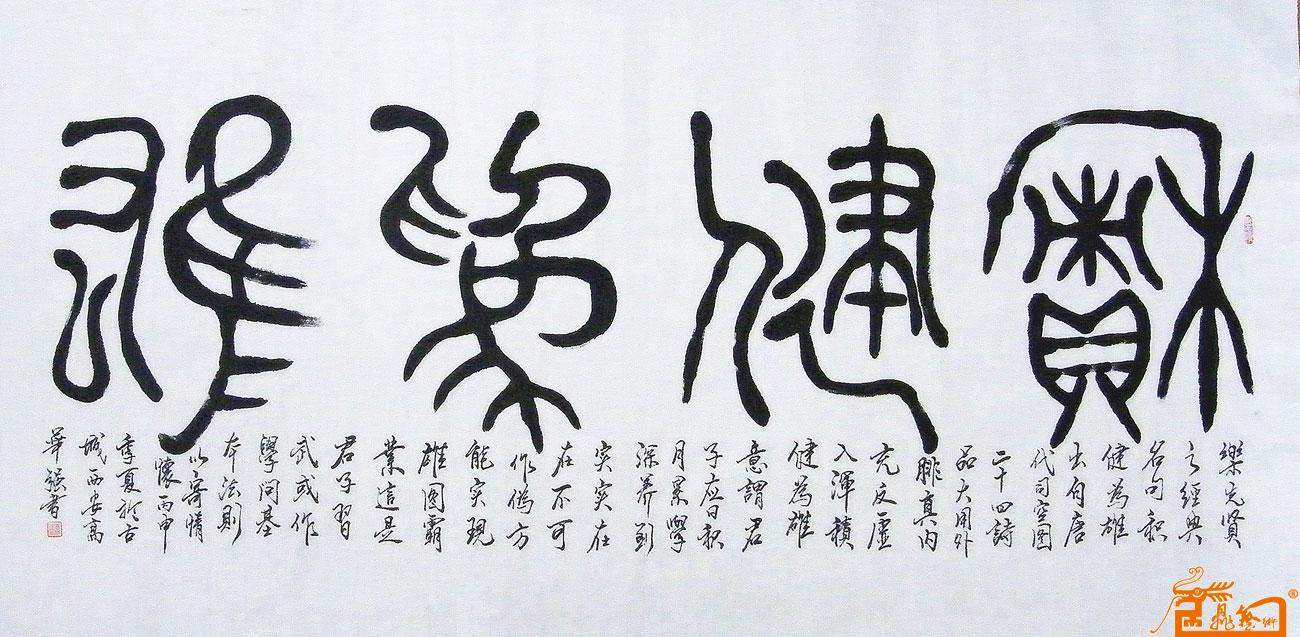 積健為雄
樂元賢
之經典
名句积
健為雄
出自唐
代司空图
二十四詩
品大用外
腓真内
充反虛
入渾積
健為雄
意謂君
子應日积
月累學
深养到
实实在
在不可
作偽方
能实現
雄图霸
業這是
君子習
武或作
學问基
本法則
以寄情
懷丙申
季夏於古
城西安高
華强書